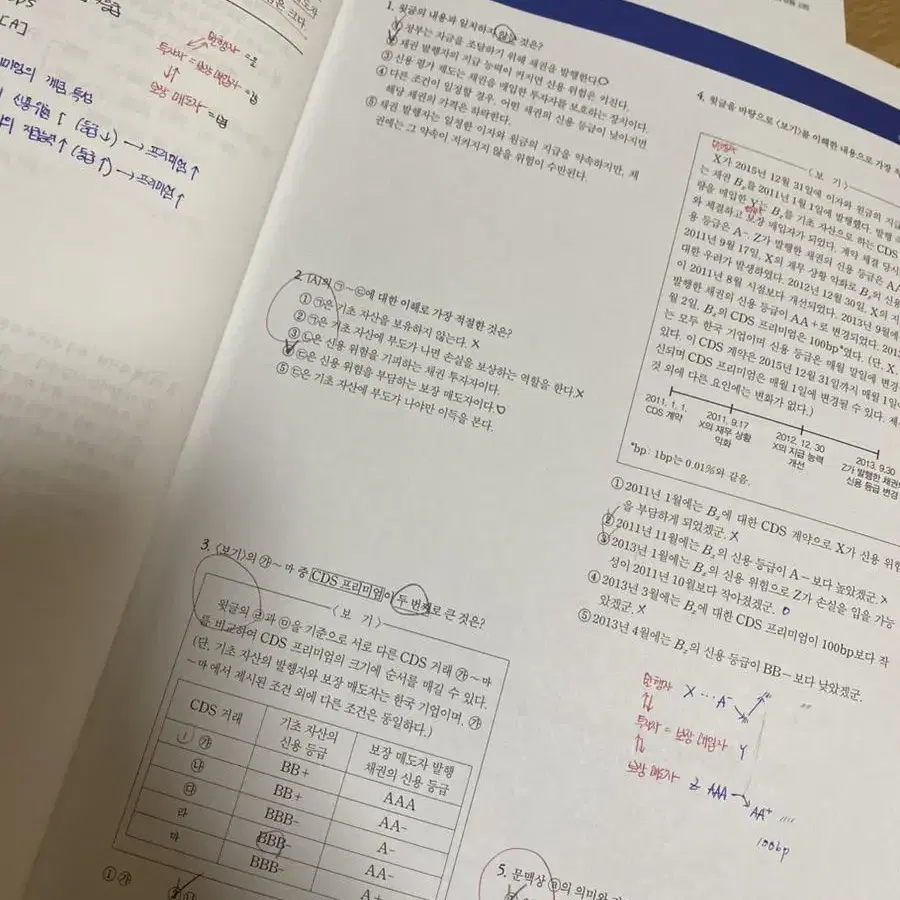 [A]
발행자 = 乙
투자자 = 보장 매입자 =
보장 매도자 =
신용위험↑ (등급↓) → 프리미엄↑
↑ (등급↑) → 프리미엄↑
1. 윗글의 내용과 일치하지 않는 것은?
① 정부는 자금을 조달하기 위해 채권을 발행한다.
② 채권 발행자의 지급 능력이 커지면 신용 위험은 커진다.
③ 신용 평가 제도는 채권을 매입한 투자자를 보호하는 장치이다.
④ 다른 조건이 일정할 경우, 어떤 채권의 신용 등급이 낮아지면
해당 채권의 가격은 하락한다.
⑤ 채권 발행자는 일정한 이자와 원금의 지급을 약속하지만, 채
권에는 그 약속이 지켜지지 않을 위험이 수반된다.
2. [A]의 ㉠~㉢에 대한 이해로 가장 적절한 것은?
① ㉠은 기초 자산을 보유하지 않는다. X
② ㉠은 기초 자산에 부도가 나면 손실을 보상하는 역할을 한다. X
③ ㉡은 신용 위험을 기피하는 채권 투자자이다.
④ ㉢은 신용 위험을 부담하는 보장 매도자이다. O
⑤ ㉢은 기초 자산에 부도가 나야만 이득을 본다.
3. <보기>의 ㉮~마 중 CDS 프리미엄이 두 번째로 큰 것은?
<보 기>
윗글의 ㉣과 ㉤을 기준으로 서로 다른 CDS 거래 ㉮~마
를 비교하여 CDS 프리미엄의 크기에 순서를 매길 수 있다.
(단, 기초 자산의 발행자와 보장 매도자는 한국 기업이며, ㉮
~마에서 제시된 조건 외에 다른 조건은 동일하다.)
CDS 거래 기초 자산의 신용 등급 보장 매도자 발행 채권의 신용 등급
㉮ BB+ AAA
㉯ BB+ AA-
㉰ BBB- A-
라 BBB- AA-
마 BBB- A+
① ㉮
4. 윗글을 바탕으로 <보기>를 이해한 내용으로 가장
<보 기>
발행자
X가 2015년 12월 31일에 이자와 원금의 지급
는 채권 Bx를 2011년 1월 1일에 발행했다. 발행
량을 매입한 Y는 Bx를 기초 자산으로 하는 CDS
와 체결하고 보장 매입자가 되었다. 계약 체결 당시
용 등급은 A-, Z가 발행한 채권의 신용 등급은 AA
2011년 9월 17일, X의 재무 상황 악화로 Bx의 신용
대한 우려가 발생하였다. 2012년 12월 30일, X의 지
이 2011년 8월 시점보다 개선되었다. 2013년 9월에
발행한 채권의 신용 등급이 AA+로 변경되었다. 201
월 2일, Bx의 CDS 프리미엄은 100bp*였다. (단, X,
는 모두 한국 기업이며 신용 등급은 매월 말일에 변경
있다. 이 CDS 계약은 2015년 12월 31일까지 매월 1일에
신되며 CDS 프리미엄은 매월 1일에 변경될 수 있다. 제
것 외에 다른 요인에는 변화가 없다.)
2011. 1. 1. CDS 계약
2011. 9.17 X의 재무 상황 악화
2012. 12. 30 X의 지급 능력 개선
2013. 9.30 Z가 발행한 채권의 신용 등급 변경
*bp: 1bp는 0.01%와 같음.
① 2011년 1월에는 Bx에 대한 CDS 계약으로 X가 신용 위험
을 부담하게 되었겠군. X
② 2011년 11월에는 Bx의 신용 등급이 A-보다 높았겠군. X
③ 2013년 1월에는 Bx의 신용 위험으로 Z가 손실을 입을 가능
성이 2011년 10월보다 작아졌겠군. O
④ 2013년 3월에는 Bx에 대한 CDS 프리미엄이 100bp보다 작
았겠군. X
⑤ 2013년 4월에는 Bx의 신용 등급이 BB-보다 낮았겠군.
발행자 X … A-
투자자 = 보장 매입자 Y
보장 매도자 Z AAA → AA+
100bp
5. 문맥상 ⓐ의 의미와